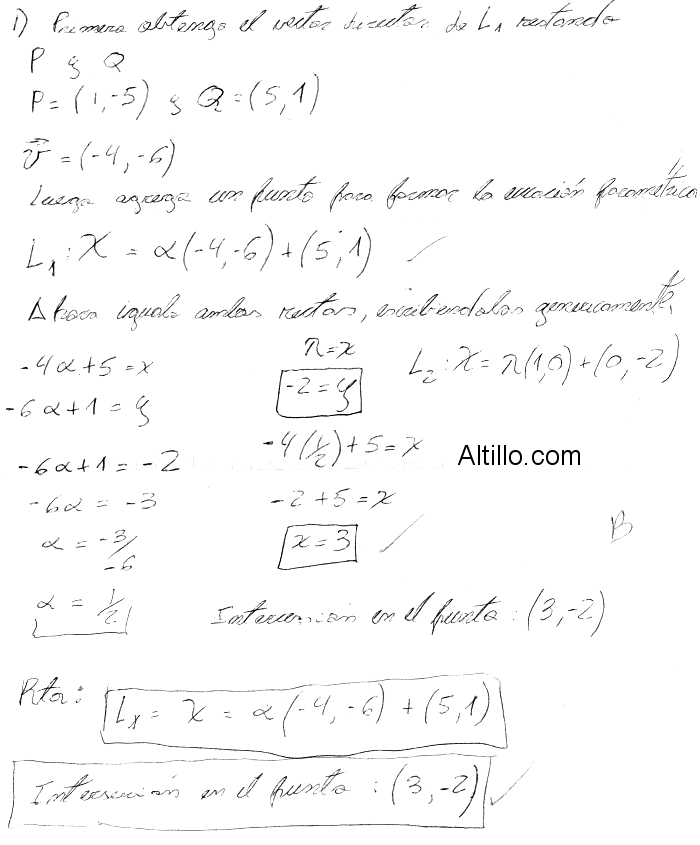 1) Primero obtengo el vector director de L₁ restando
P y Q
P = (1, -5) y Q = (5, 1)
v⃗ = (-4, -6)
Luego agrego un punto para formar la ecuación paramétrica
L₁ : X = α(-4, -6) + (5, 1) ✓
Ahora igualo ambas rectas, escribiendolas genericamente.
-4α + 5 = x
λ = x
L₂ : X = λ(1,0) + (0, -2)
-6α + 1 = y
-2 = y
-6α + 1 = -2
-4(1/2) + 5 = x
Altillo.com
-6α = -3
-2 + 5 = x
α = -3/-6
x = 3 ✓
B
α = 1/2
Intersección en el punto : (3, -2)
Rta:
L₁ = X = α(-4, -6) + (5, 1)
Intersección en el punto : (3, -2) ✓